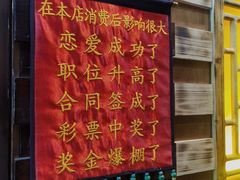 在本店消费后影响很大
恋爱成功了
职位升高了
合同签成了
彩票中奖了
奖金爆棚了